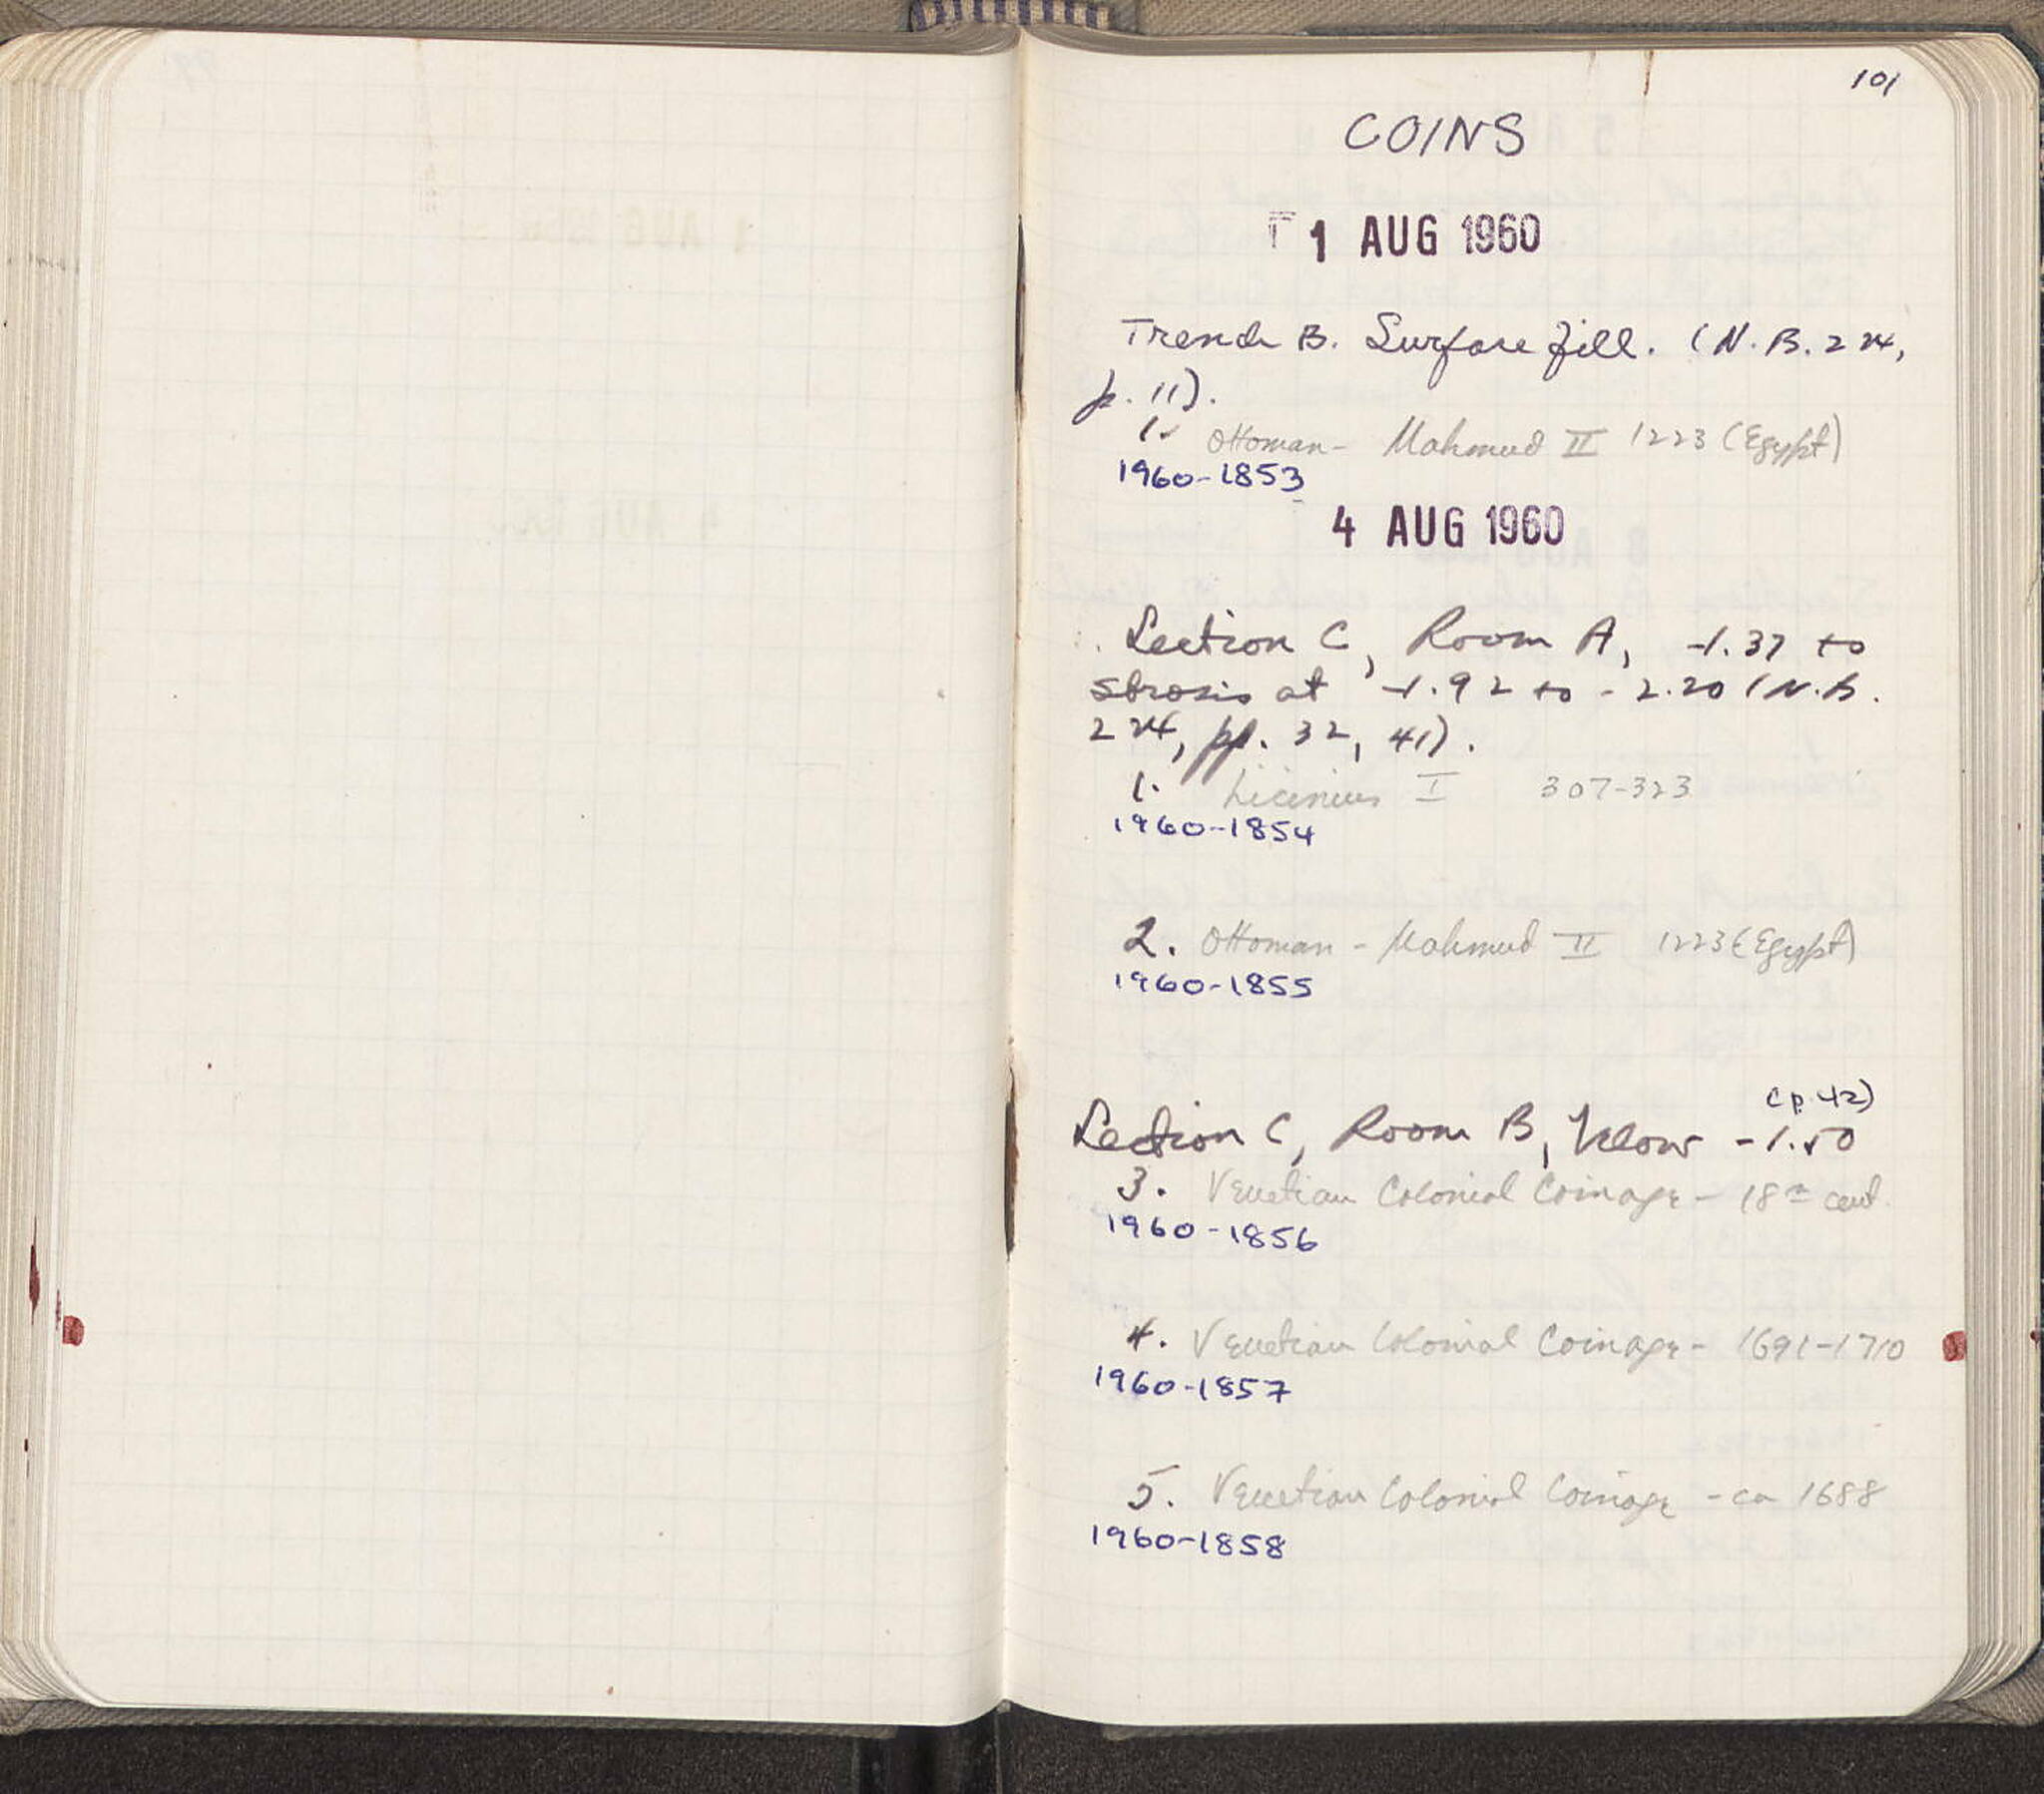 101
COINS
1 AUG 1960
Trench B. Surface fill. (N.B. 224,
p. 11).
1. Ottoman - Mahmud II 1223 (Egypt)
1960-1853
4 AUG 1960
Section C, Room A, -1.37 to
strosis at -1.92 to -2.20 (N.B.
224, pp. 32, 41).
1. Licinius I 307-323
1960-1854
2. Ottoman - Mahmud II 1223 (Egypt)
1960-1855
(p. 42)
Section C, Room B, below -1.50
3. Venetian Colonial Coinage - 18th cent.
1960-1856
4. Venetian Colonial Coinage - 1691-1710
1960-1857
5. Venetian Colonial Coinage - ca 1688
1960-1858